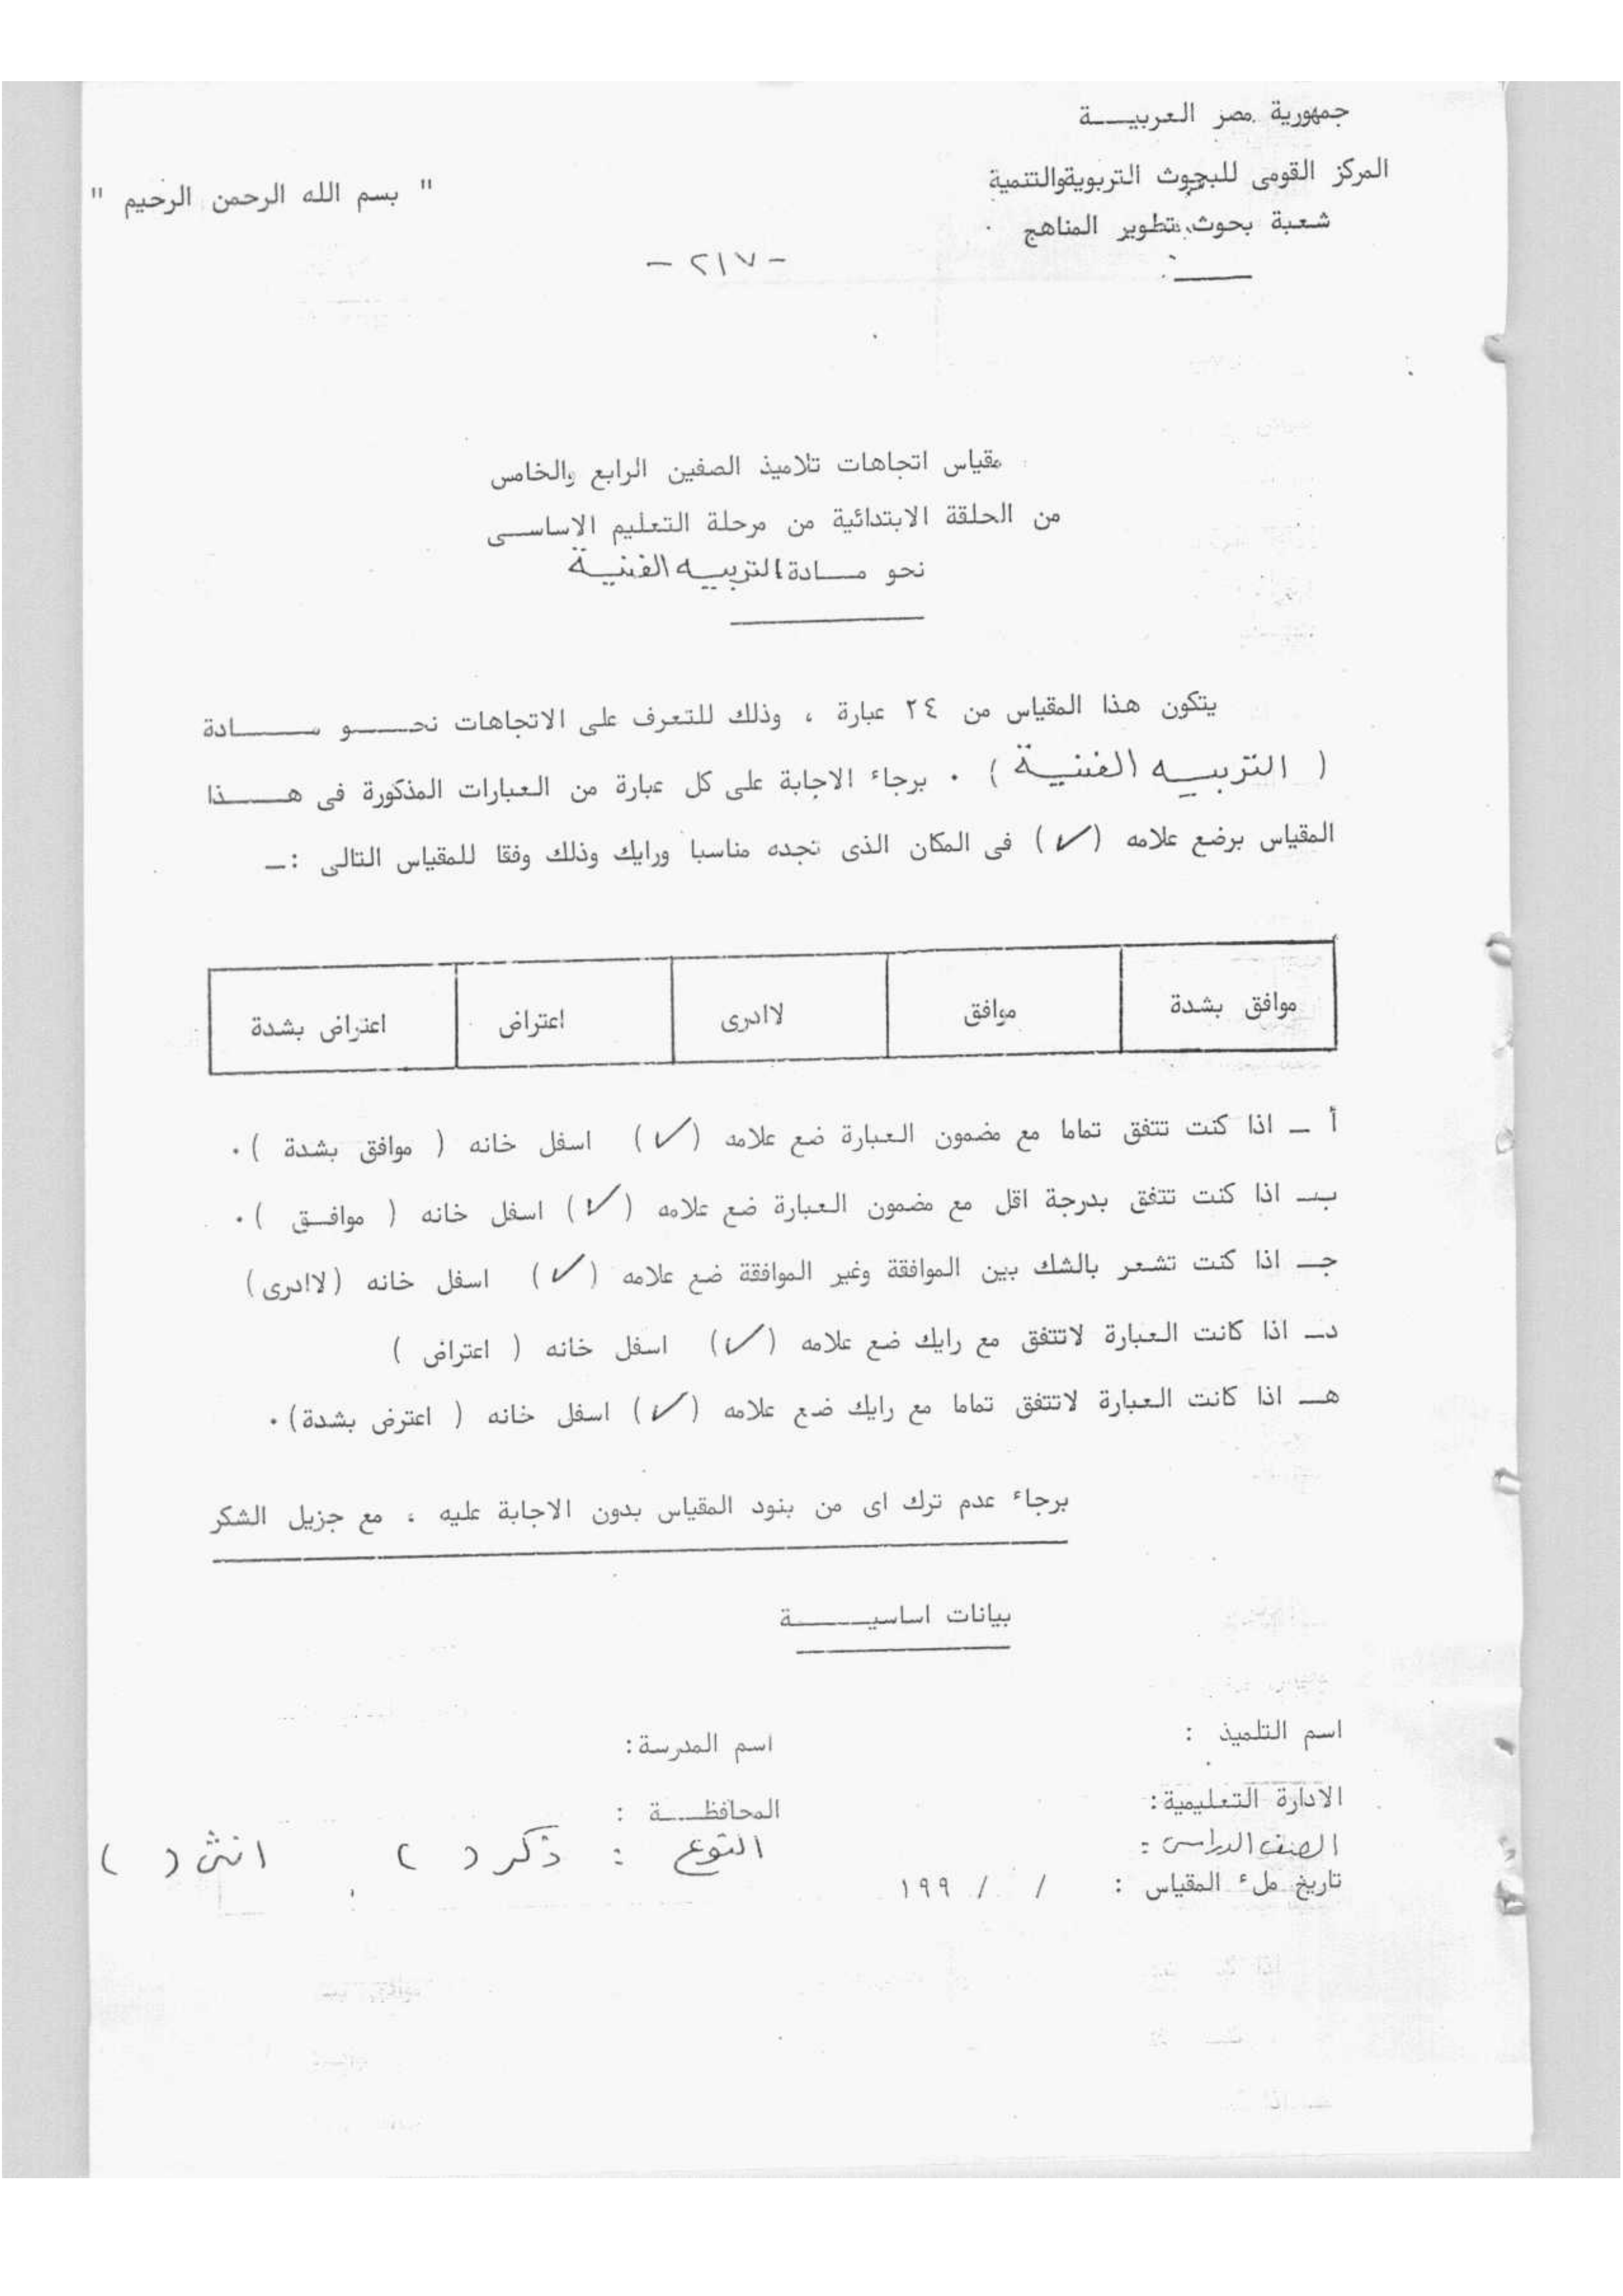 جمهورية مصر العربيـــة
المركز القومى للبحوث التربويةوالتنمية
" بسم الله الرحمن الرحيم "
شعبة بحوث تطوير المناهج ٠
- ٢١٧ -
مقياس اتجاهات تلاميذ الصفين الرابع والخامس
من الحلقة الابتدائية من مرحلة التعليم الاساســى
نحو مــادة التربيــه الفنيــة
يتكون هذا المقياس من ٢٤ عبارة ، وذلك للتعرف على الاتجاهات نحــو مــــادة
( التربيــه الفنيــة ) ٠ برجاء الاجابة على كل عبارة من العبارات المذكورة فى هــــذا
المقياس برضع علامه (✓) فى المكان الذى تجده مناسبا ورايك وذلك وفقا للمقياس التالى :ــ
موافق بشدة
موافق
لاادرى
اعتراض
اعتراض بشدة
أ ــ اذا كنت تتفق تماما مع مضمون العبارة ضع علامه (✓) اسفل خانه ( موافق بشدة ) ٠
بــ اذا كنت تتفق بدرجة اقل مع مضمون العبارة ضع علامه (✓) اسفل خانه ( موافــق ) ٠
جــ اذا كنت تشعر بالشك بين الموافقة وغير الموافقة ضع علامه (✓) اسفل خانه (لاادرى)
دــ اذا كانت العبارة لاتتفق مع رايك ضع علامه (✓) اسفل خانه ( اعتراض )
هــ اذا كانت العبارة لاتتفق تماما مع رايك ضع علامه (✓) اسفل خانه ( اعترض بشدة) ٠
برجاء عدم ترك اى من بنود المقياس بدون الاجابة عليه ، مع جزيل الشكر
بيانات اساسيـــــة
اسم التلميذ :
اسم المدرسة :
الادارة التعليمية :
المحافظــة :
الصف الدراسى :
النوع : ذكر ( ) انثى ( )
تاريخ ملء المقياس : / / ١٩٩